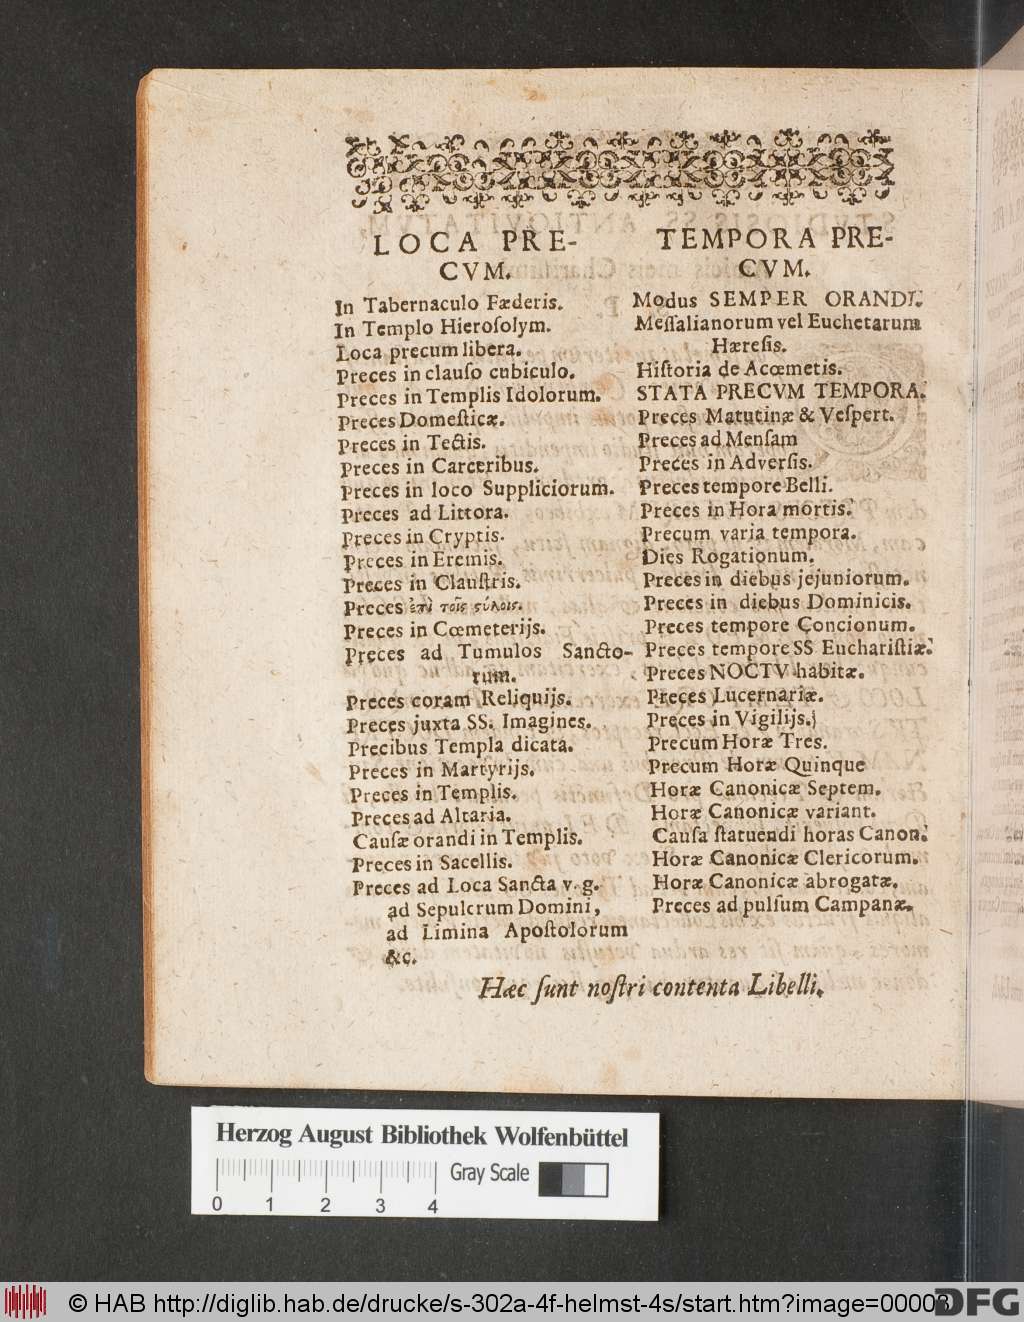 LOCA PRE-
CVM.
In Tabernaculo Fæderis.
In Templo Hieroſolym.
Loca precum libera.
Preces in clauſo cubiculo.
Preces in Templis Idolorum.
Preces Domeſticæ.
Preces in Tectis.
Preces in Carceribus.
Preces in loco Suppliciorum.
Preces ad Littora.
Preces in Cryptis.
Preces in Eremis.
Preces in Clauſtris.
Preces ἐπὶ τοῖς ςύλοις.
Preces in Cœmeterijs.
Preces ad Tumulos Sancto-
rum.
Preces coram Reliquijs.
Preces juxta SS. Imagines.
Precibus Templa dicata.
Preces in Martyrijs.
Preces in Templis.
Preces ad Altaria.
Cauſæ orandi in Templis.
Preces in Sacellis.
Preces ad Loca Sancta v. g.
ad Sepulcrum Domini,
ad Limina Apoſtolorum
&c.
TEMPORA PRE-
CVM.
Modus SEMPER ORANDI.
Meſſalianorum vel Euchetarum
Hæreſis.
Hiſtoria de Acœmetis.
STATA PRECVM TEMPORA.
Preces Matutinæ & Veſpert.
Preces ad Menſam
Preces in Adverſis.
Preces tempore Belli.
Preces in Hora mortis.
Precum varia tempora.
Dies Rogationum.
Preces in diebus jejuniorum.
Preces in diebus Dominicis.
Preces tempore Concionum.
Preces tempore SS Euchariſtiæ.
Preces NOCTV habitæ.
Preces Lucernariæ.
Preces in Vigilijs.
Precum Horæ Tres.
Precum Horæ Quinque
Horæ Canonicæ Septem.
Horæ Canonicæ variant.
Cauſa ſtatuendi horas Canon.
Horæ Canonicæ Clericorum.
Horæ Canonicæ abrogatæ.
Preces ad pulſum Campanæ.
Hæc ſunt noſtri contenta Libelli.
Herzog August Bibliothek Wolfenbüttel
Gray Scale
0 1 2 3 4
© HAB http://diglib.hab.de/drucke/s-302a-4f-helmst-4s/start.htm?image=00008
DFG